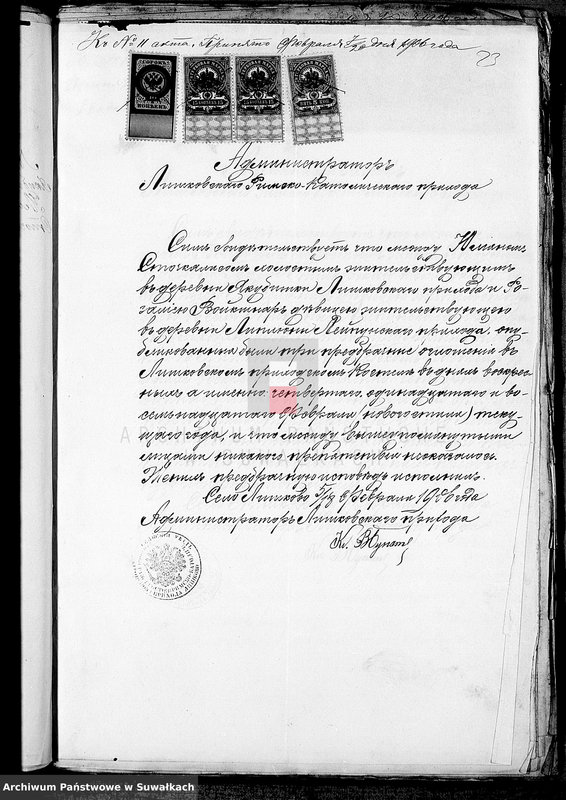 Къ № 11 акта. Принято Февраля 7/20 дня 1906 года
23
СОРОКЪ
КОПѢЕКЪ
15 КОПѢЕКЪ 15
15 КОПѢЕКЪ 15
ПЯТЬ 5 КОП
Администраторъ
Лишковскаго Римско-Католическаго прихода
Симъ свидѣтельствуетъ что между
холостымъ жительствующимъ
въ деревни Лишковскаго прихода и Ро-
заліею дѣвицею жительствующею
въ деревни Лейпунскаго прихода, опу-
бликованныи были три предбрачные оглашенія въ
Лишковскомъ приходскомъ Костелѣ въ дняхъ воскрес-
ныхъ а именно: четвертаго, одинадцатаго и во-
семьнадцатаго Февраля (новаго стиля) теку-
щаго года, и что между вышеупомянутыми
лицами никакого препятствія неоказалось.
Женихъ предбрачную исповѣдь исполнилъ.
Село Лишково 5/18 Февраля 1906 года
Администраторъ Лишковскаго прихода
Кс.
Archiwum Państwowe w Suwałkach